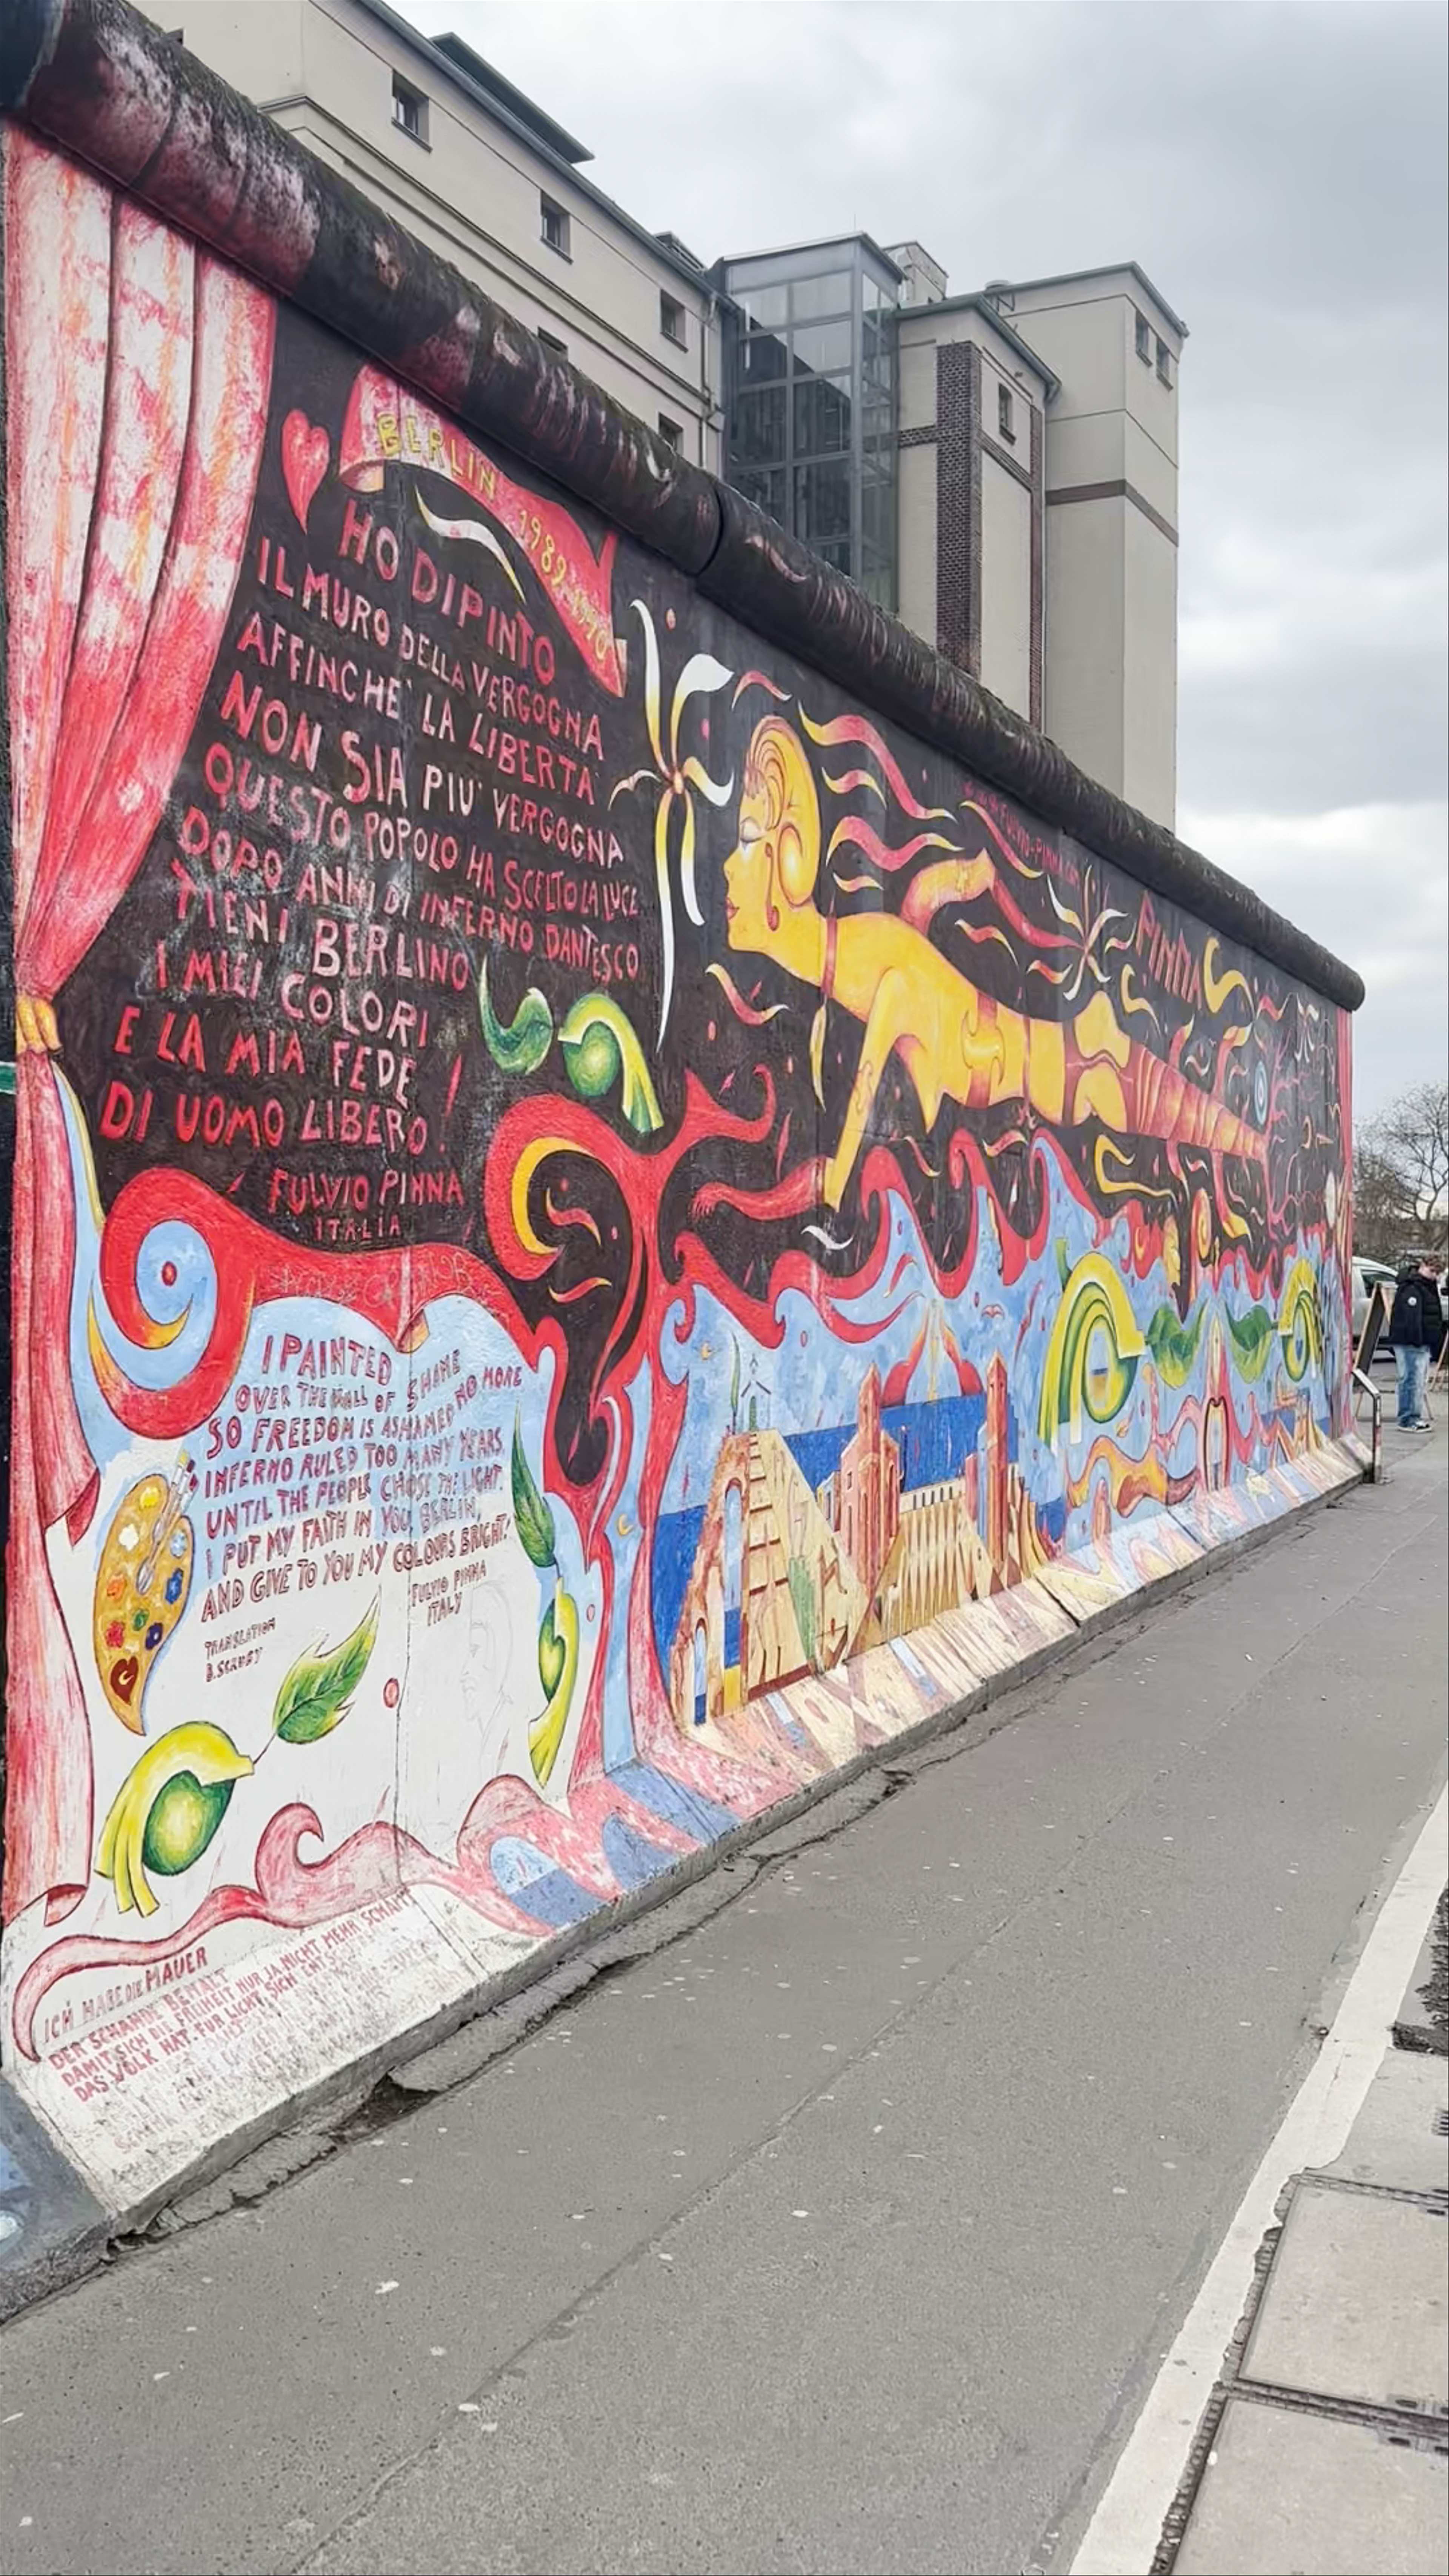 BERLIN 1989-1990
HO DIPINTO
IL MURO DELLA VERGOGNA
AFFINCHE' LA LIBERTA'
NON SIA PIU' VERGOGNA
QUESTO POPOLO HA SCELTO LA LUCE
DOPO ANNI DI INFERNO DANTESCO
TIENI BERLINO
I MIEI COLORI
E LA MIA FEDE
DI UOMO LIBERO!
FULVIO PINNA
ITALIA
FULVIO-PINNA
PINNA
I PAINTED
OVER THE WALL OF SHAME
SO FREEDOM IS ASHAMED NO MORE
INFERNO RULED TOO MANY YEARS
UNTIL THE PEOPLE CHOSE THE LIGHT.
I PUT MY FAITH IN YOU, BERLIN,
AND GIVE TO YOU MY COLOURS BRIGHT!
FULVIO PINNA
ITALY
TRANSLATION
ICH HABE DIE MAUER
DER SCHANDE BEMALT
DAMIT SICH DIE FREIHEIT NUR JA NICHT MEHR SCHÄMT
DAS VOLK HAT FÜR LICHT SICH